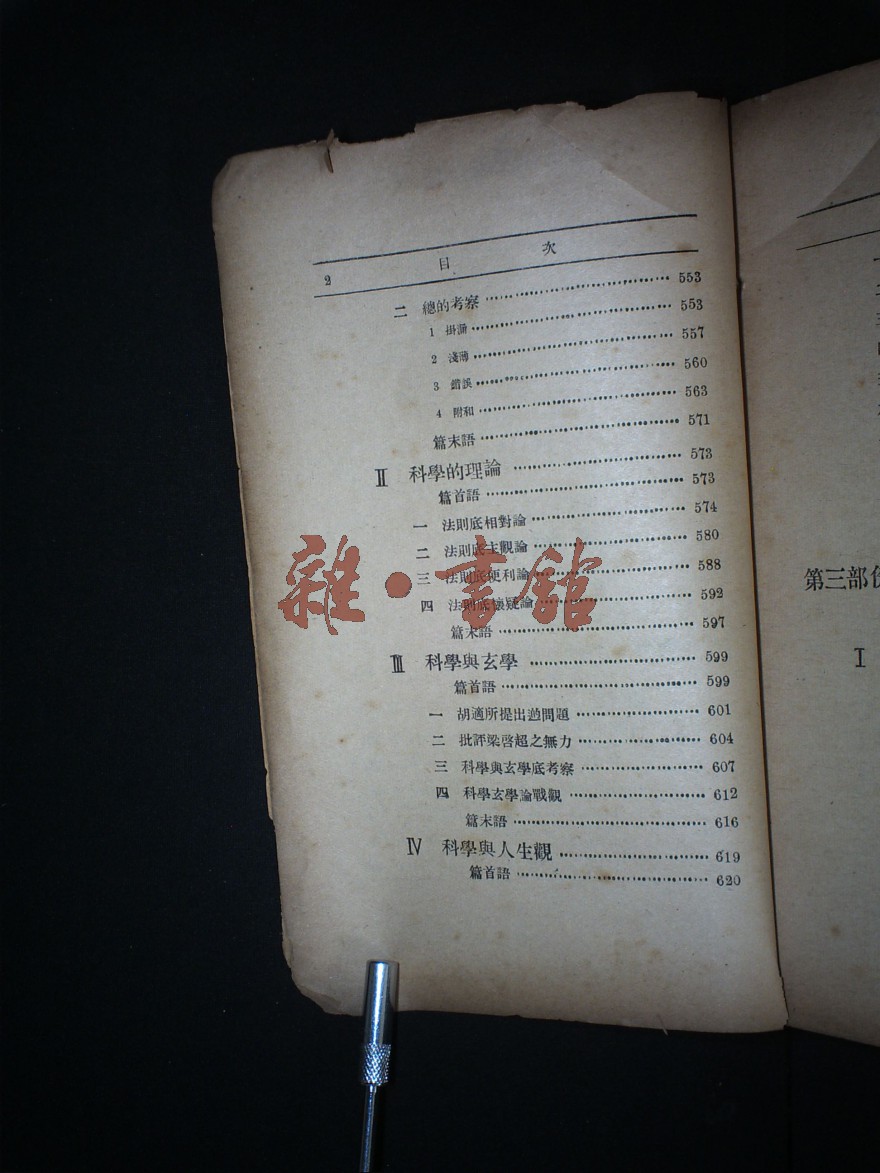 2 目次
二 總的考察 553
1 掛漏 553
2 淺薄 557
3 錯誤 560
4 附和 563
篇末語 571
Ⅱ 科學的理論 573
篇首語 573
一 法則底相對論 574
二 法則底主觀論 580
三 法則底便利論 588
四 法則底懷疑論 592
篇末語 597
Ⅲ 科學與玄學 599
篇首語 599
一 胡適所提出過問題 601
二 批評梁啓超之無力 604
三 科學與玄學底考察 607
四 科學玄學論戰觀 612
篇末語 616
Ⅳ 科學與人生觀 619
篇首語 620
雜·書館
第三部
Ⅰ